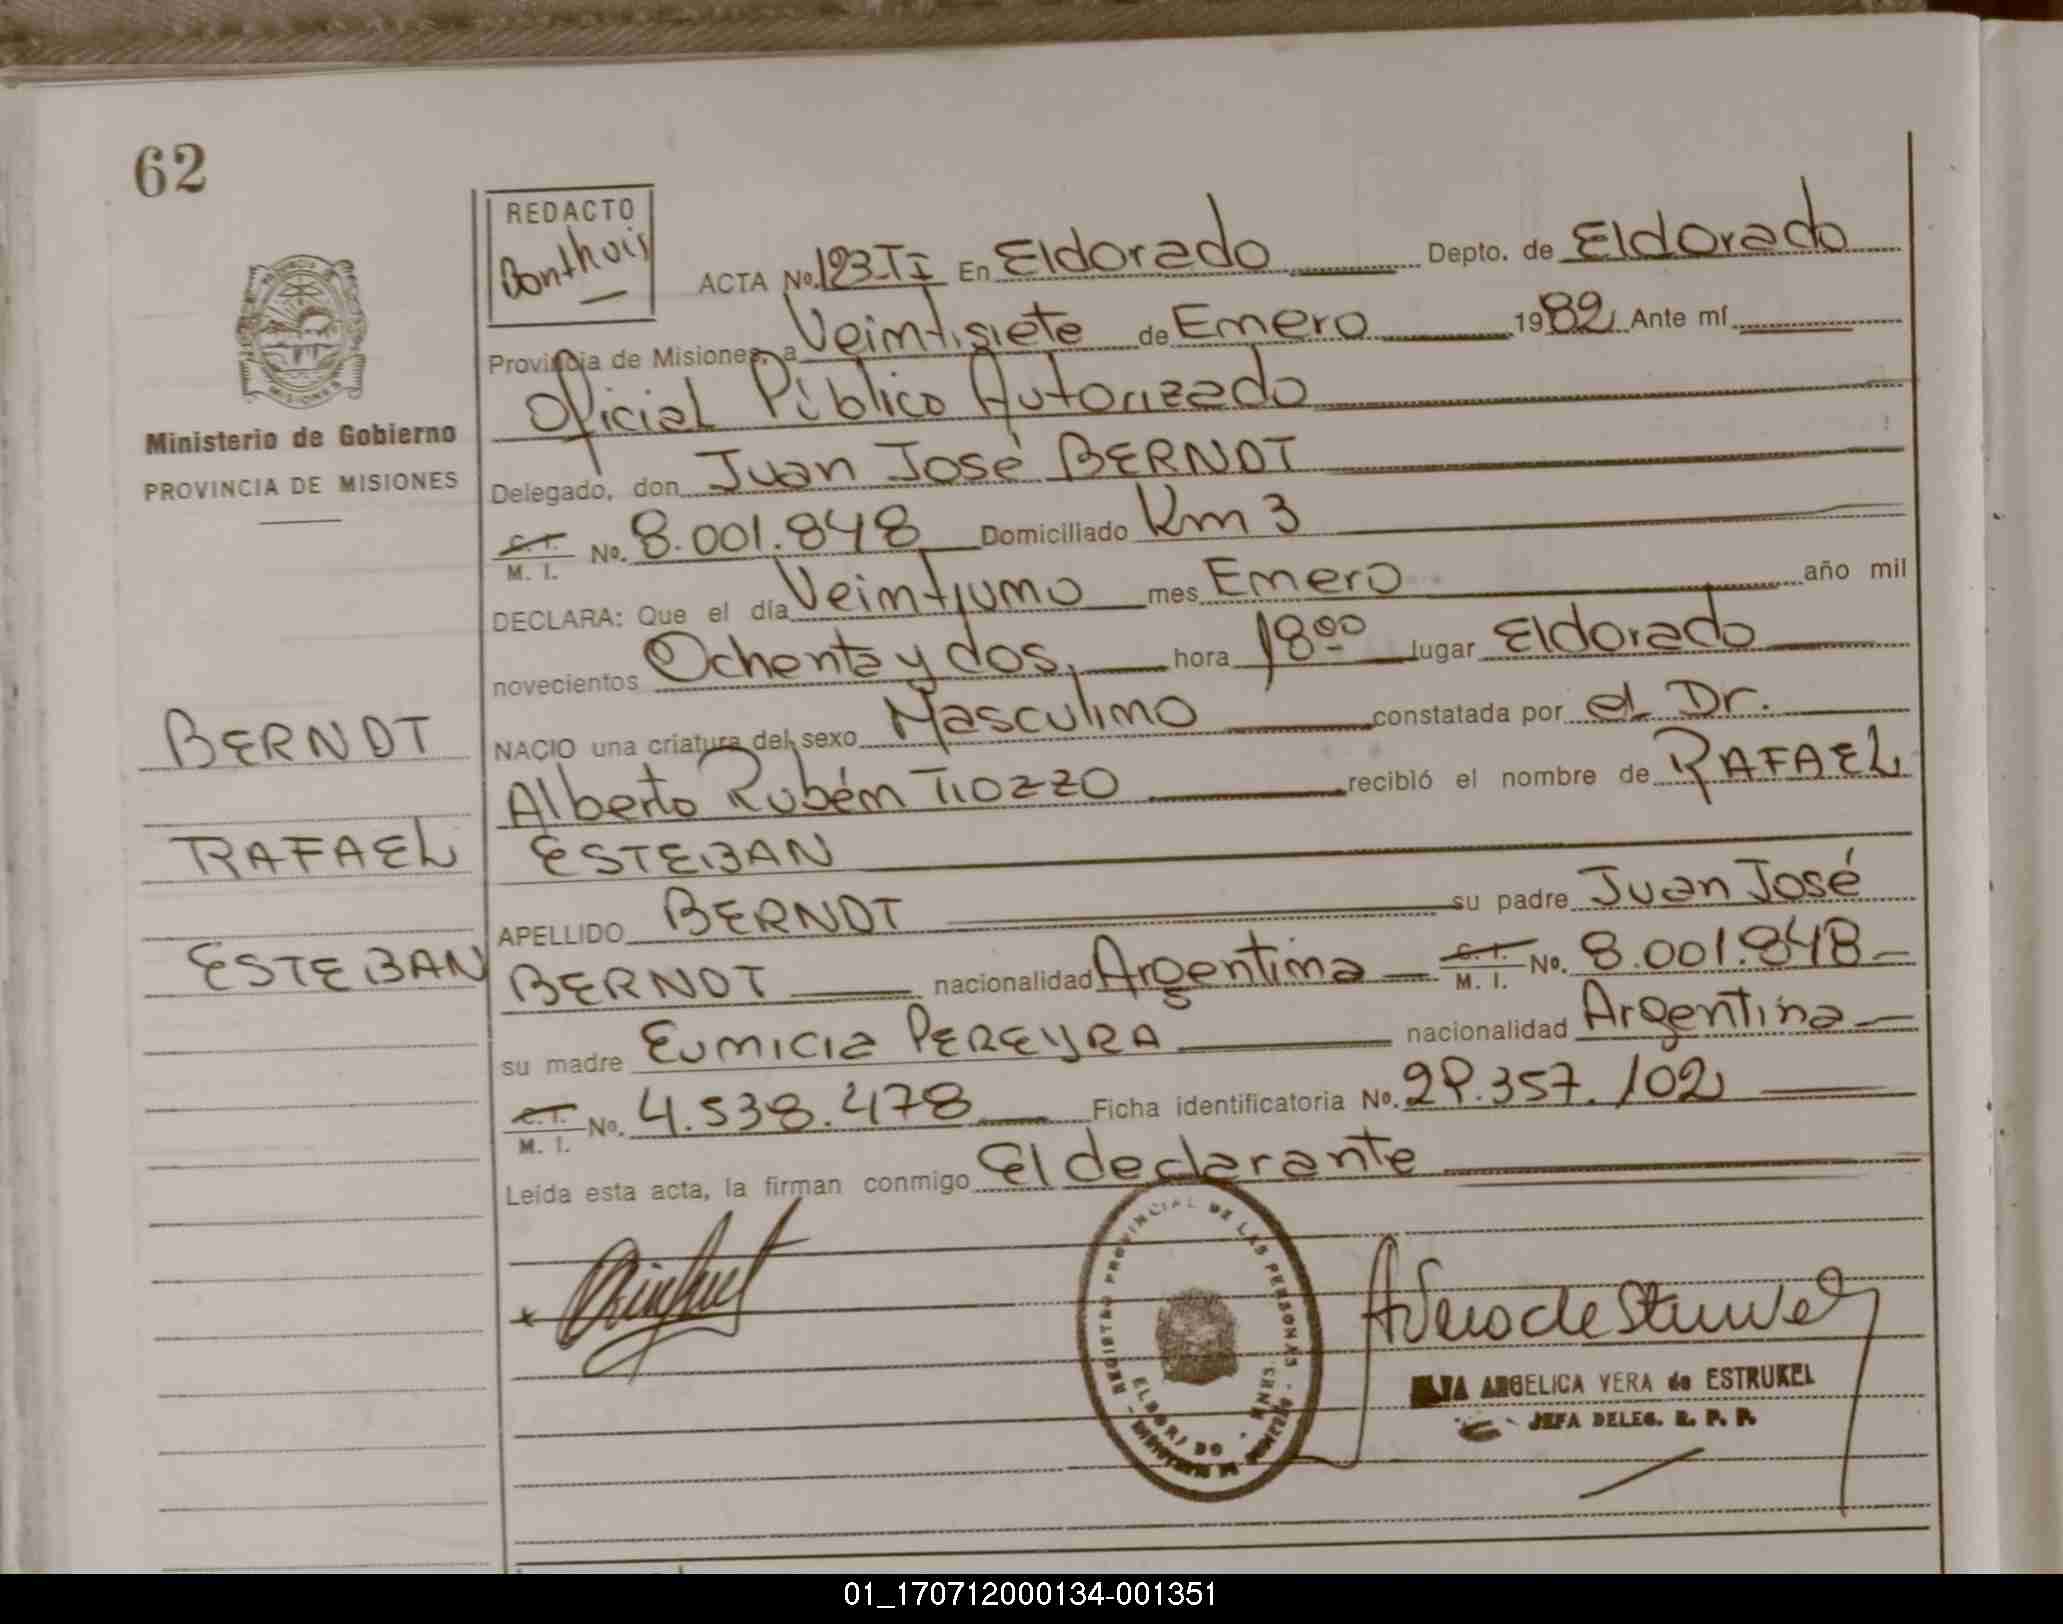 62
REDACTO
Bonthuis
ACTA No. 123-TI En Eldorado Depto. de Eldorado
Provincia de Misiones, a Veintisiete de Enero 1982 Ante mí
Oficial Público Autorizado
Ministerio de Gobierno
PROVINCIA DE MISIONES
Delegado, don Juan José BERNDT
C. I. M. I. No. 8.001.848 Domiciliado Km 3
DECLARA: Que el día Veintiuno mes Enero año mil
novecientos Ochenta y dos, hora 18 00 lugar Eldorado
NACIO una criatura del sexo Masculino constatada por el Dr.
Alberto Rubén TIOZZO recibió el nombre de RAFAEL
ESTEBAN
APELLIDO BERNDT su padre Juan José
BERNDT nacionalidad Argentina C. I. M. I. No. 8.001.848
su madre Eunicia PEREYRA nacionalidad Argentina
C. I. M. I. No. 4.538.478 Ficha identificatoria No. 29.357.102
Leída esta acta, la firman conmigo El declarante
BERNDT
RAFAEL
ESTEBAN
REGISTRO PROVINCIAL DE LAS PERSONAS
ELDORADO - MNES.
ANGELICA VERA de ESTRUKEL
JEFA DELEG. R. P. P.
01_170712000134-001351